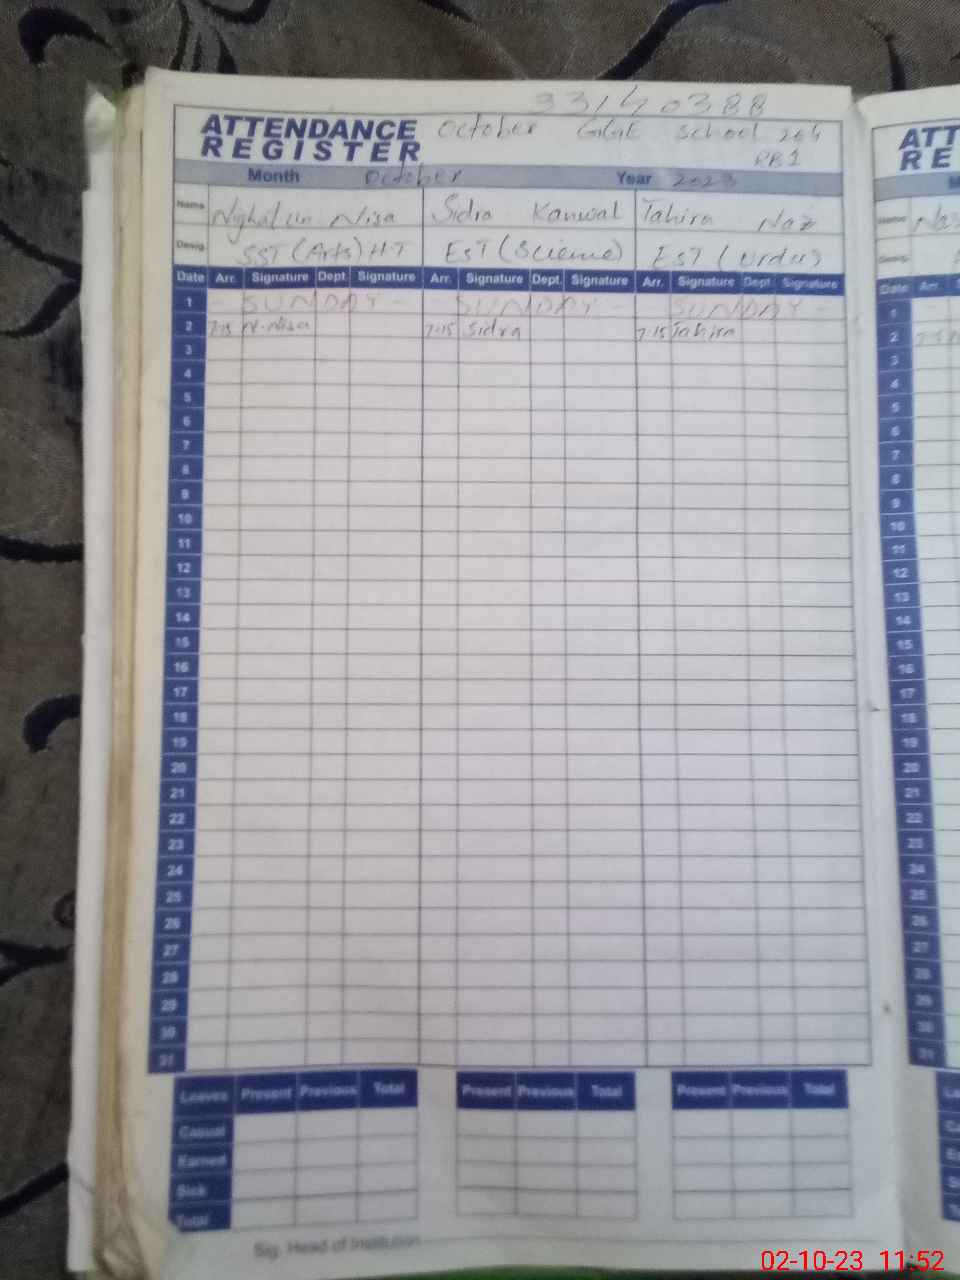 33140388
ATTENDANCE October GGE School 204
REGISTER RB1
Month October Year 2023
Name Nighat un Nisa Sidra Kanwal Tahira Naz
Desig. SST (Arts) HT EST (Science) EST (Urdu)
Date Arr. Signature Dept. Signature Arr. Signature Dept. Signature Arr. Signature Dept. Signature
1 - SUNDAY - - SUNDAY - SUNDAY
2 7-15 N-Nisa 7-15 Sidra 7-15 Tahira
3
4
5
6
7
8
9
10
11
12
13
14
15
16
17
18
19
20
21
22
23
24
25
26
27
28
29
30
31
Leaves Present Previous Total Present Previous Total Present Previous Total
Casual
Earned
Sick
Total
Sig. Head of Institution
ATT
RE
Name
Desig.
Date Arr.
1
2
3
4
5
6
7
8
9
10
11
12
13
14
15
16
17
18
19
20
21
22
23
24
25
26
27
28
29
30
31
02-10-23 11:52